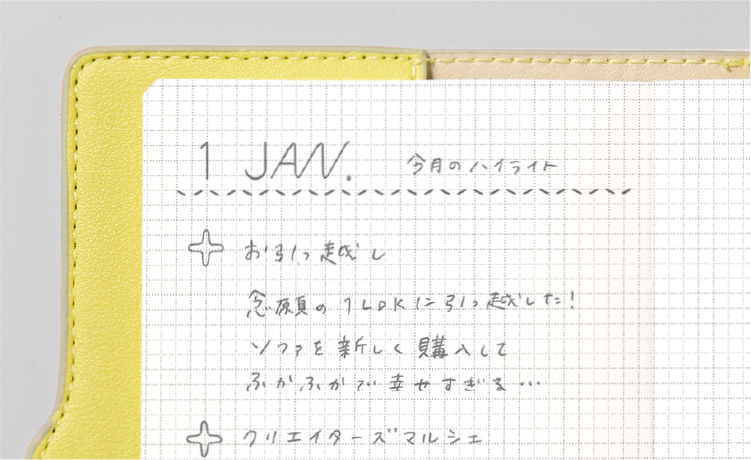 1 JAN. 今月のハイライト
お引っ越し
念願の1LDKに引っ越した!
ソファを新しく購入して
ふかふかで幸せすぎる…
クリエイターズマルシェ